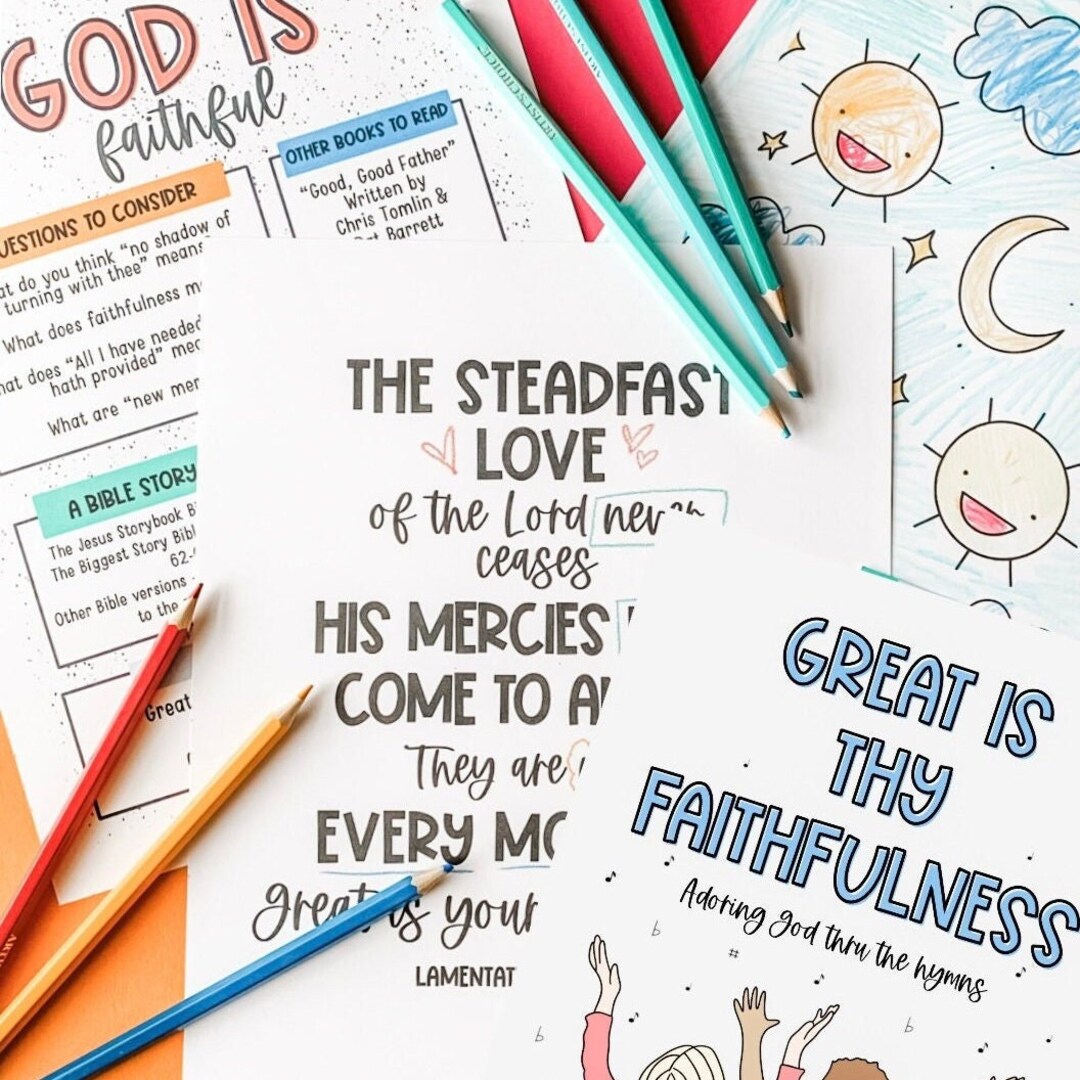 GOD IS
faithful
QUESTIONS TO CONSIDER
do you think "no shadow of
turning with thee"
What does faithfulness
does "All I have needed
hath provided"
What are "new
OTHER BOOKS TO READ
"Good, Good Father"
Written by
Chris Tomlin &
Barrett
A BIBLE STORY
The Jesus Storybook
The Biggest Story
Other Bible versions
to the
Great
THE STEADFAST
LOVE
of the Lord never
ceases
HIS MERCIES
COME TO
They are
EVERY
great is your
LAMENTAT
GREAT IS
THY
FAITHFULNESS
Adoring God thru the hymns
ARTIST'S CHOICE